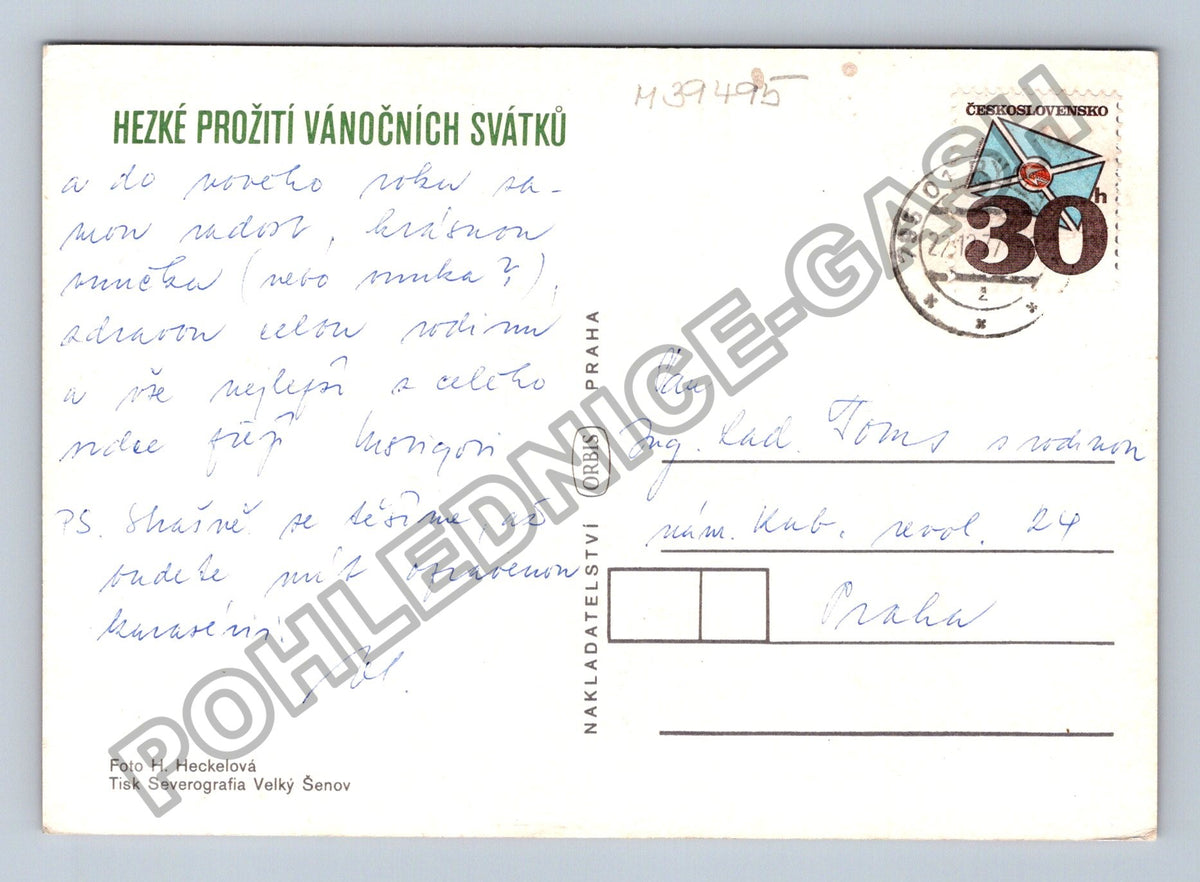 HEZKÉ PROŽITÍ VÁNOČNÍCH SVÁTKŮ
a do nového roku sa-
mou radost, krásnou
vnučku (nebo vnuka?),
zdravou celou rodinu
a vše nejlepší z celého
srdce přejí
PS. Strašně se těšíme, až
budete mít opravenou
Foto H. Heckelová
Tisk Severografia Velký Šenov
NAKLADATELSTVÍ ORBIS PRAHA
M39495
ČESKOSLOVENSKO
30h
Ing. Lad. Toms s rodinou
nám. Kub. revol. 24
Praha
POHLEDNICE-GASH